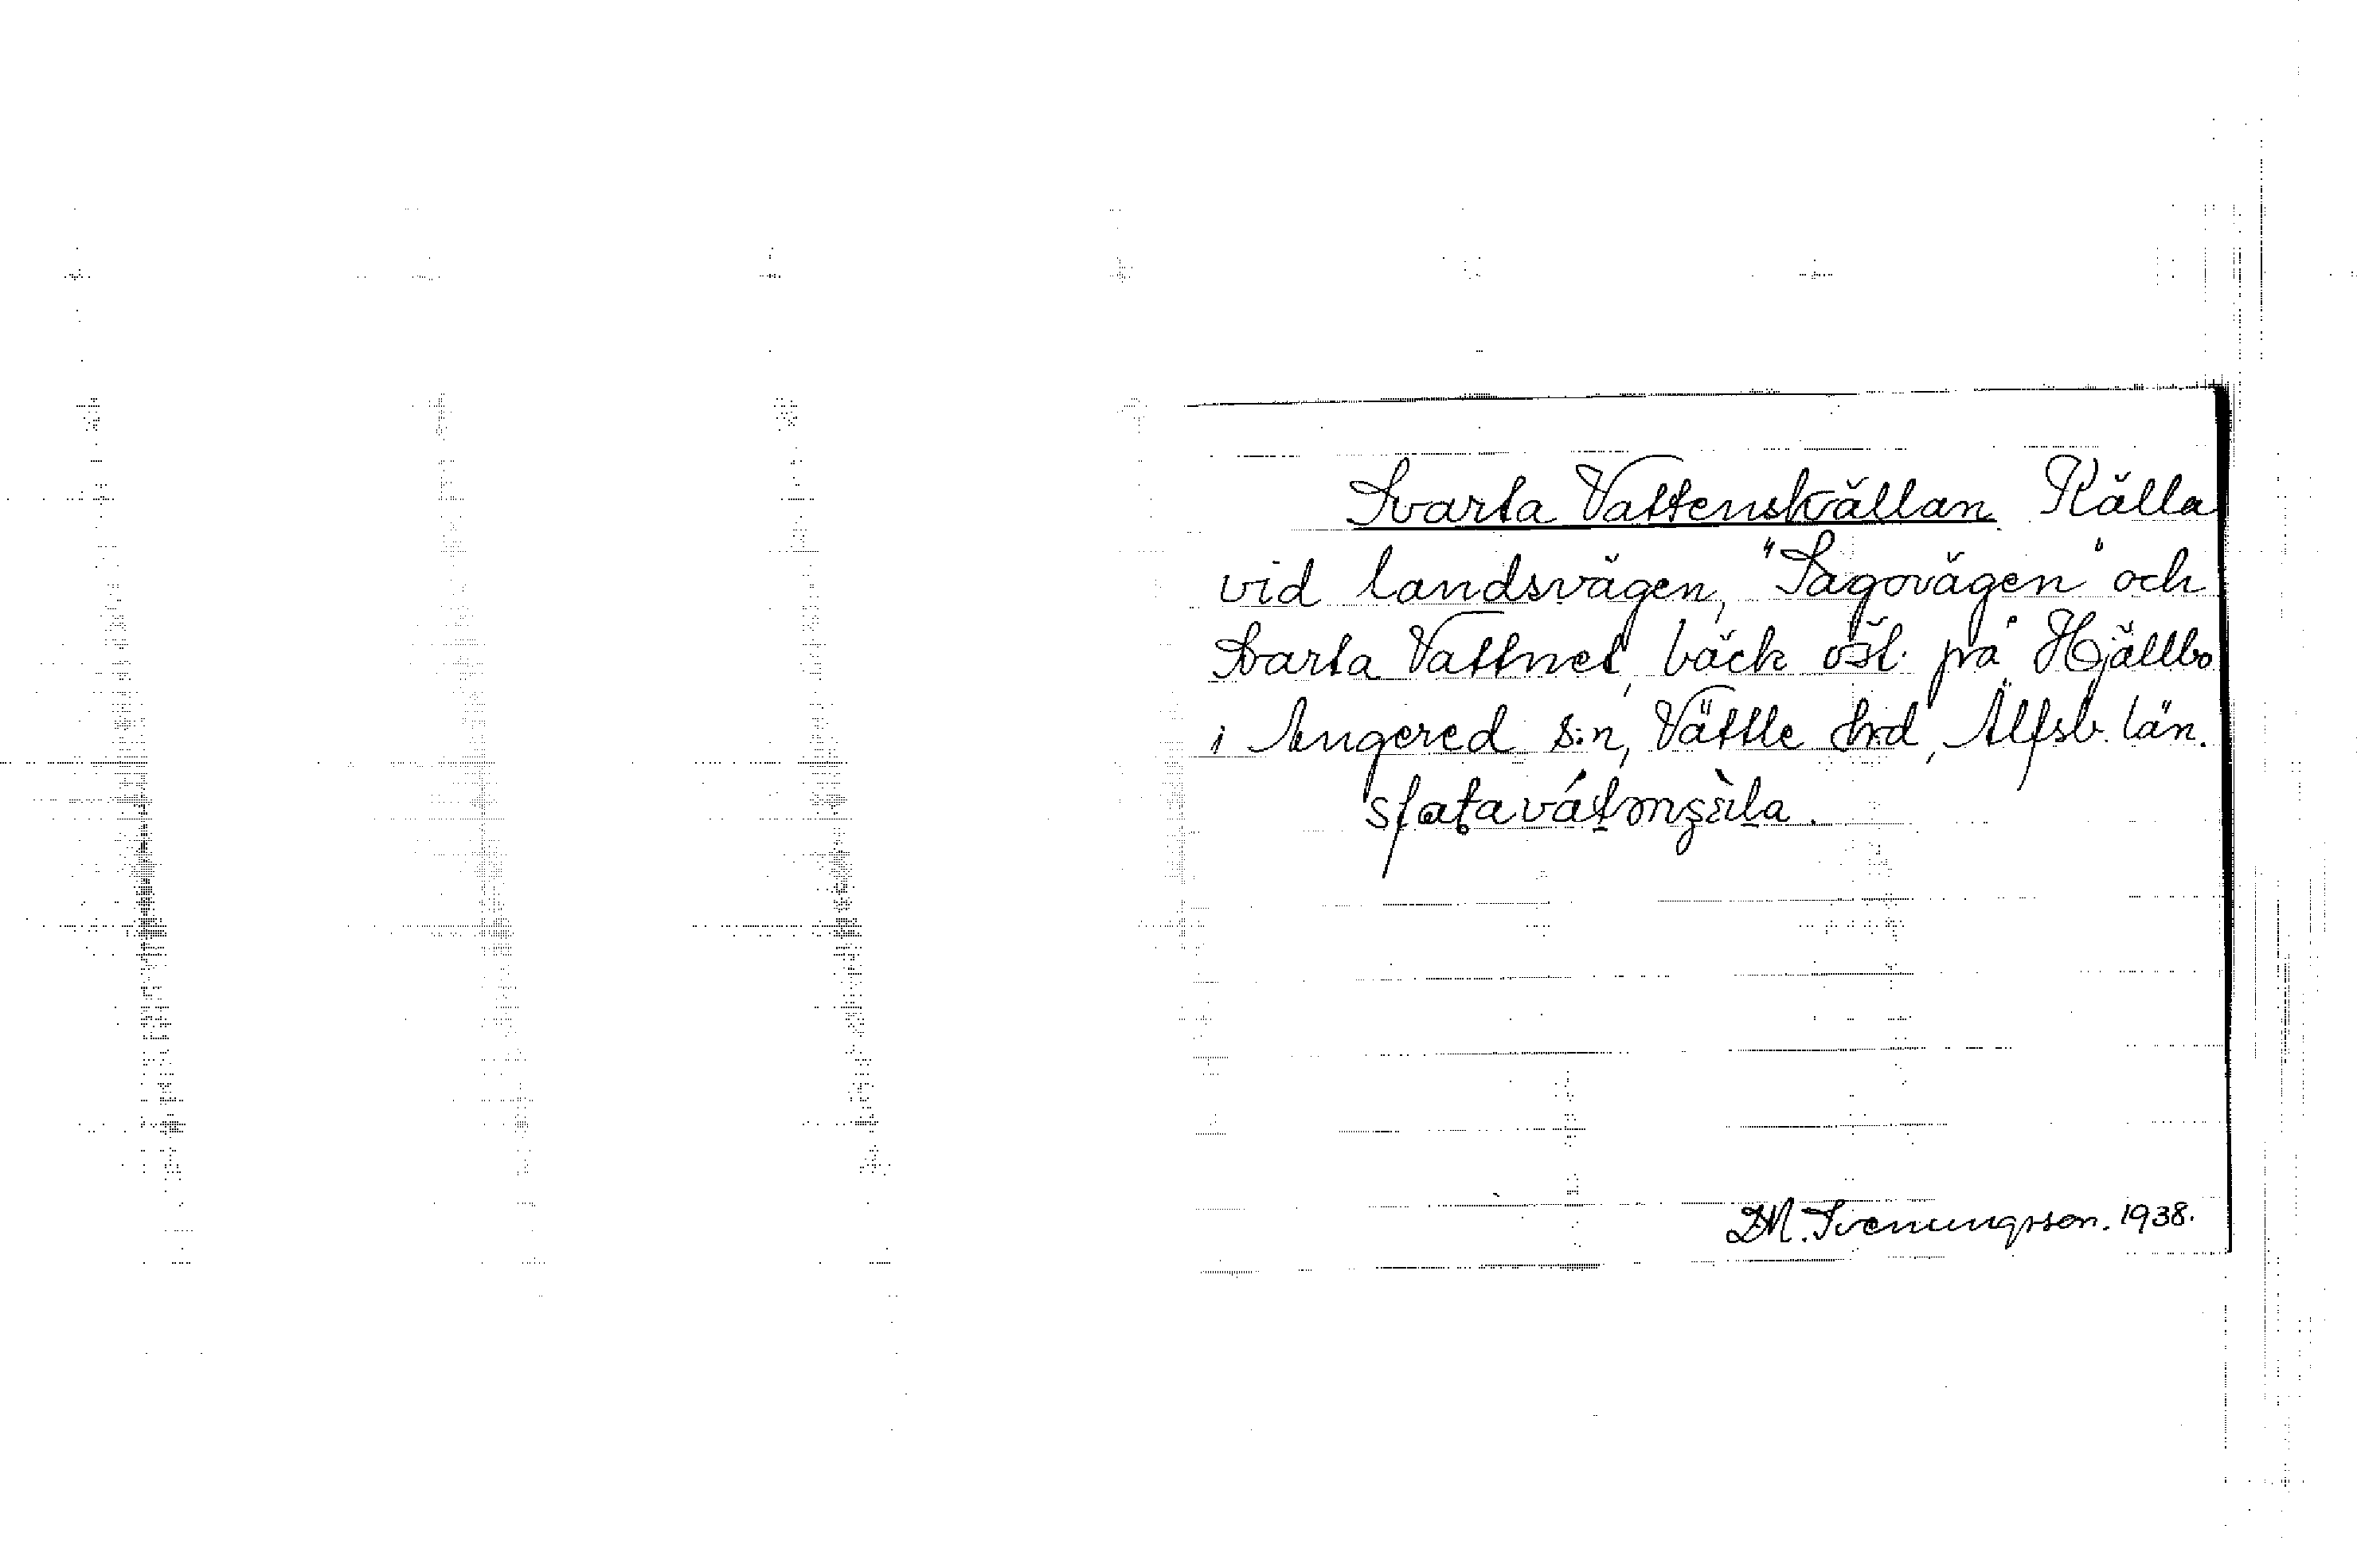 Svarta Vattenskällan Källa
vid landsvägen, "Sagovägen" och
Svarta Vattnet, bäck östl. på Hjällbo
i Angered s:n, Vättle hrd, Älfsb. län.
D.M. Svenungsson. 1938.